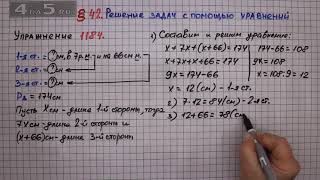 4 a 5 ru
§ 42. Решение задач с помощью уравнений
Упражнение 1184.
1-я ст. – ? см, в 7 р. м. и на 66 см м.
2-я ст. – ? см
3-я ст. – ? см
P∆ = 174 см
Пусть x см - длина 1-ой стороны, тогда
7x см - длина 2-ой стороны и
(x+66) см - длина 3-ей стороны
1) Составим и решим уравнение:
x + 7x + (x+66) = 174
x + 7x + x + 66 = 174
9x = 174 - 66
x = 12 (см) - 1-я ст.
174 - 66 = 108
9x = 108
x = 108 : 9 = 12
2) 7 · 12 = 84 (см) - 2-я ст.
3) 12 + 66 = 78 (см